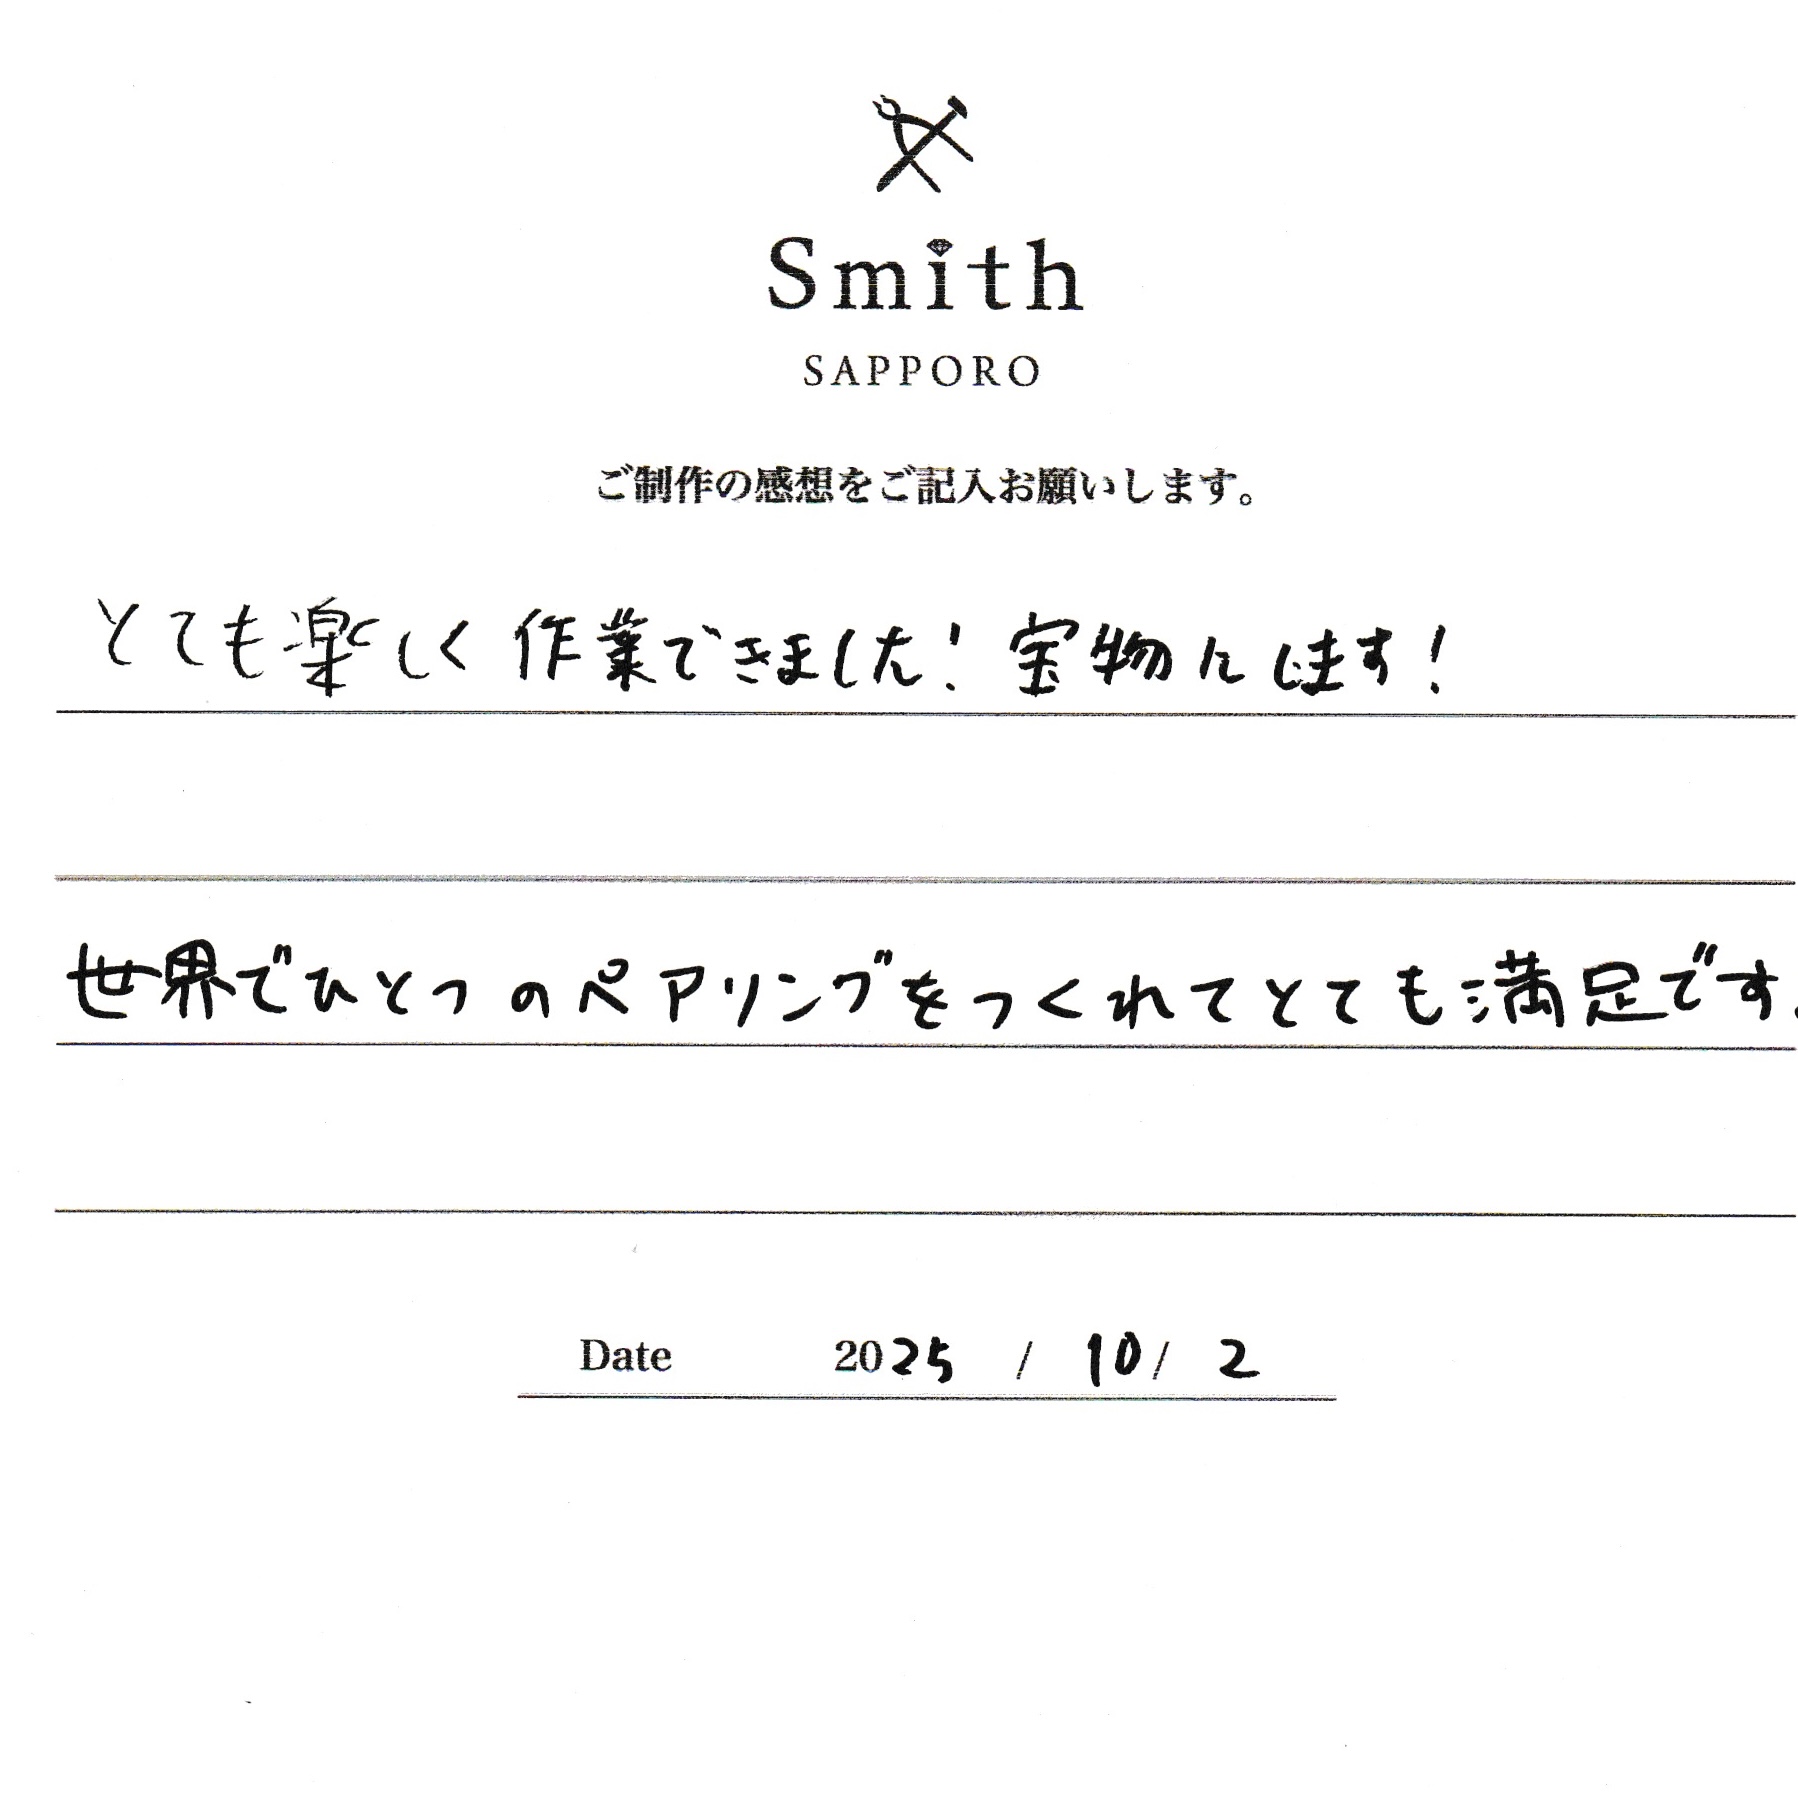 Smith
SAPPORO
ご制作の感想をご記入お願いします。
とても楽しく作業できました！宝物にします！
世界でひとつのペアリングをつくれてとても満足です。
Date 2025 / 10 / 2